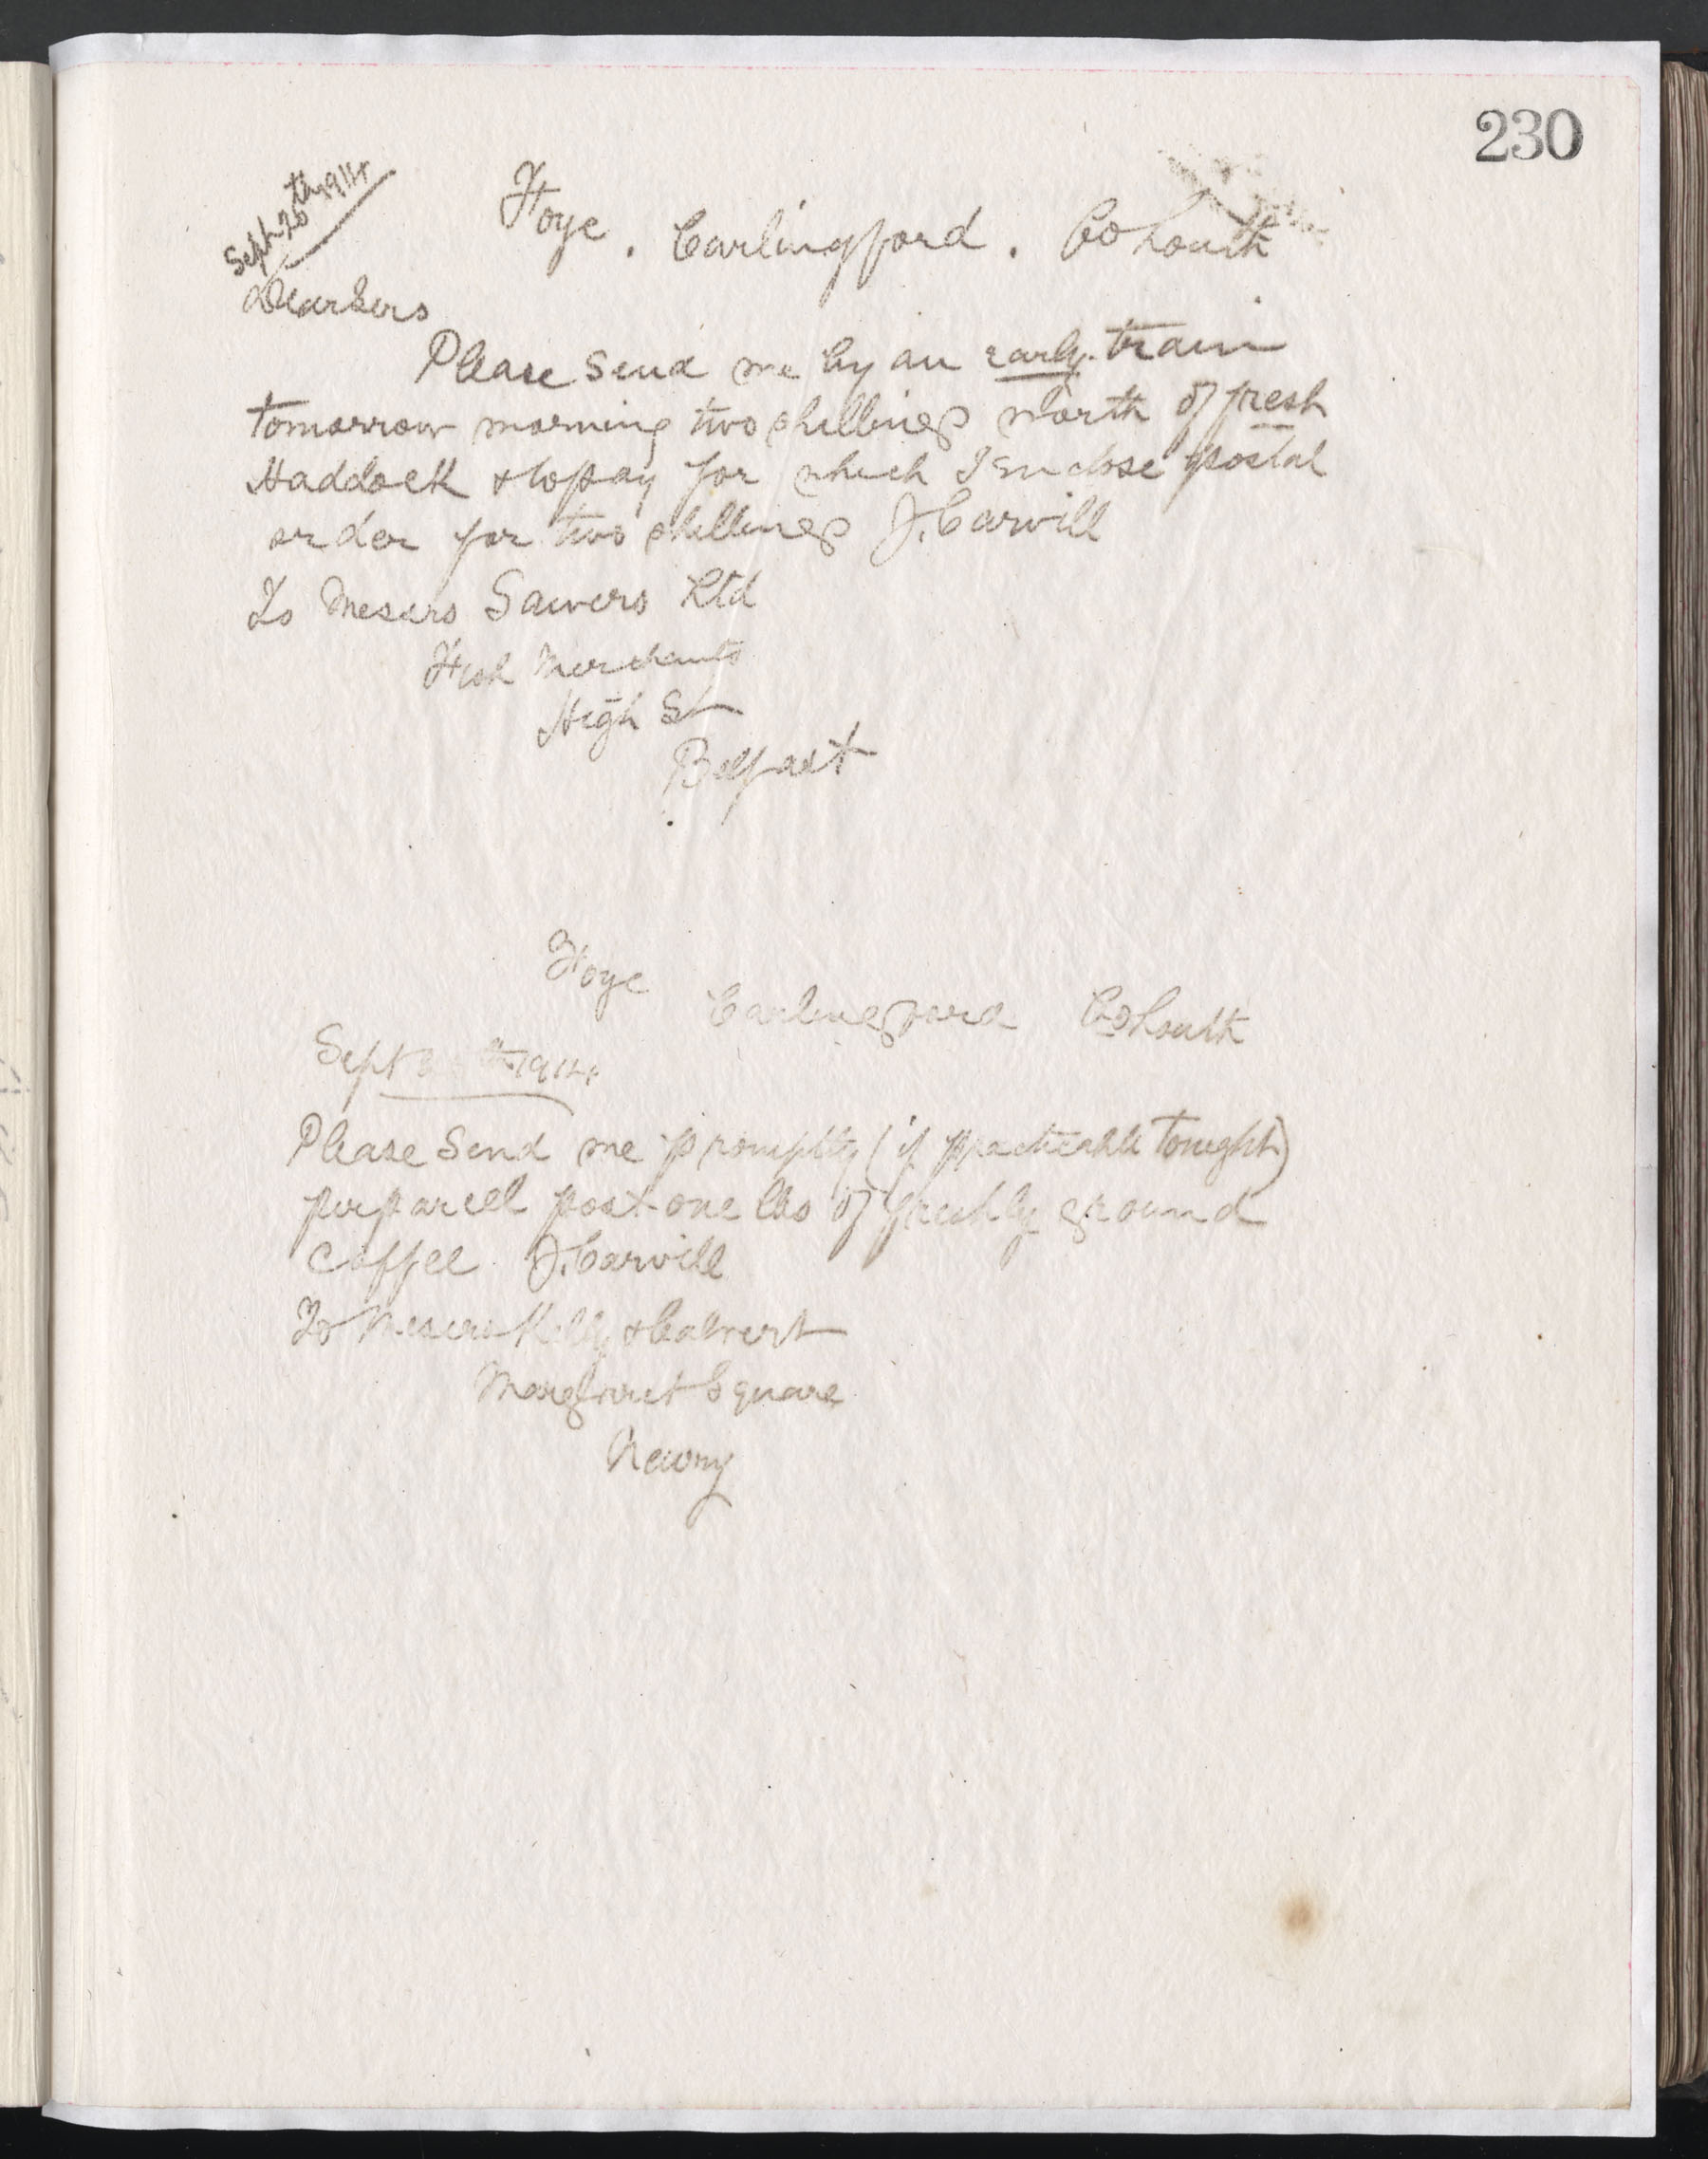 230
Sept 26th 1914
Foye. Carlingford. Co Louth
Dear Sirs
Please send me by an early train
tomorrow morning two shillings worth of fresh
Haddock & to pay for which I enclose postal
order for two shillings J. Carvill
To Messrs Sawers Ltd
Fish Merchants
High St
Belfast
Foye Carlingford Co Louth
Sept th 1914
Please Send me promptly (if practicable tonight)
per parcel post one lbs of freshly ground
Coffee. J. Carvill
To Messrs Kelly & Calvert
Margaret Square
Newry